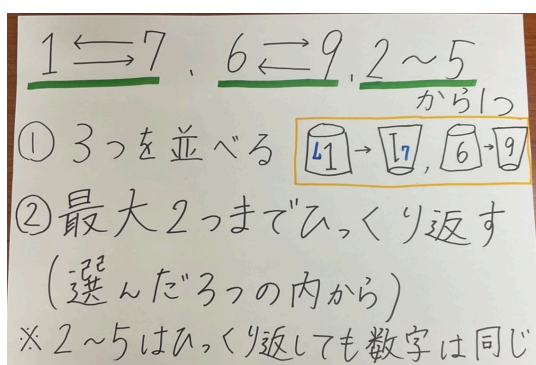 1⇄7、6⇄9、2～5
から1つ
①3つを並べる
1→1 7, 6→9
②最大2つまでひっくり返す
(選んだ3つの内から)
※2～5はひっくり返しても数字は同じ